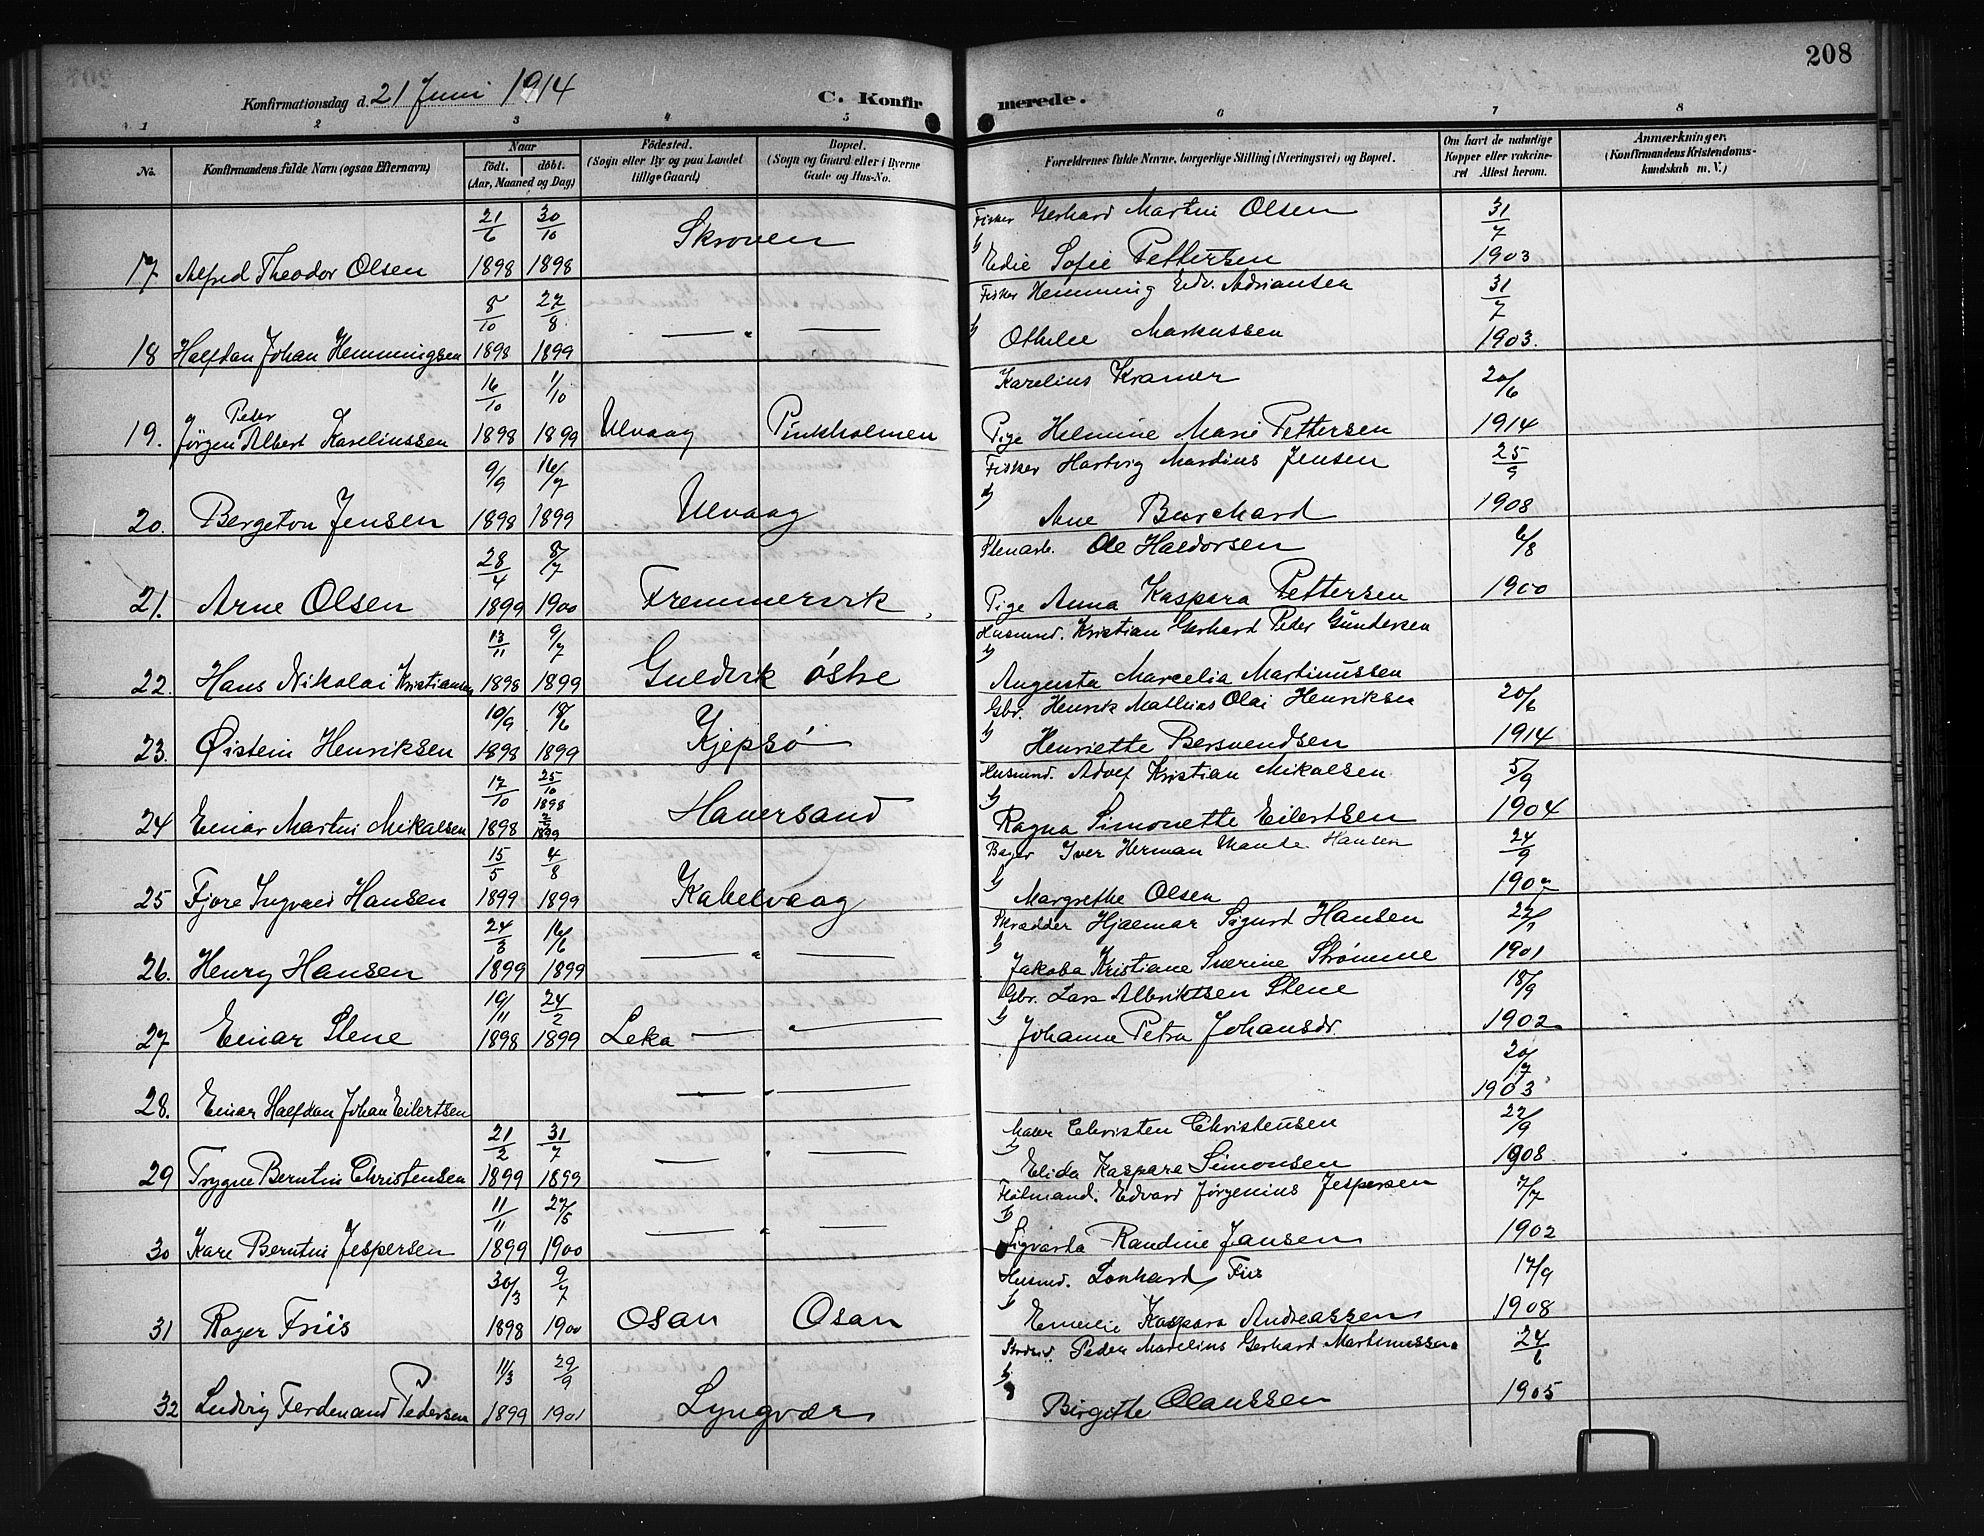 208
Konfirmationsdag d. 21 Juni 1914 C. Konfirmerede.
1 2 3 4 5 6 7 8
No. Konfirmandens fulde Navn (ogsaa Efternavn) Naar født. døbt. (Aar, Maaned og Dag) Fødested. (Sogn eller By og paa Landet tillige Gaard) Bopæl. (Sogn og Gaard eller i Byerne Gade og Hus-No. Forældrenes fulde Navne, borgerlige Stilling (Næringsvei) og Bopæl. Om havt de naturlige Kopper eller vakcineret Attest herom. Anmærkninger. (Konfirmandens Kristendomskundskab m. V.)
21/6 30/10 Skroven Fisker Gerhard Martin Olsen 31/7
17 Alfred Theodor Olsen 1898 1898 Edie Sofie Pettersen 1903
8/10 27/8 Fisker Hemming Edv. Adriansen 31/7
18 Halfdan Johan Hemmingsen 1898 1899 — " — Othelie Markussen 1903.
16/10 1/10 Karelius Kramer 20/6
19. Jørgen Peter Albert Kareliussen 1898 1899 Ulvaag Pinkholmen Pige Helmine Marie Pettersen 1914
9/9 16/7 Fisker Hartvig Mardius Jensen 25/9
20. Bergeton Jensen 1898 1899 Ulvaag Ane Burchard 1908
28/4 8/7 Stenarb. Ole Haldorsen 6/8
21. Arne Olsen 1899 1900 Fremmervik Pige Anna Kaspara Pettersen 1900
13/11 9/7 Husmd. Kristian Gerhard Peder Gundersen
22. Hans Nikolai Kristiansen 1898 1899 Guldvik østre Augusta Marcelia Martinussen
10/9 18/6 Gbr. Henrik Mathias Olai Henriksen 20/6
23. Øistein Henriksen 1898 1899 Kjepsø Henriette Bersvendsen 1914
17/10 25/10 1898 Husmd. Adolf Kristian Mikalsen 5/9
24 Einar Martin Mikalsen 1898 1899 Haversand Ragna Simonette Eilertsen 1904
15/5 4/8 Bager Iver Herman Hansen 24/9
25 Fjore Ingvald Hansen 1899 1899 Kabelvaag Margrethe Olsen 1907
24/3 16/6 Skrædder Hjalmar Sigurd Hansen
26. Henry Hansen 1899 1899 — " — Jakoba Kristiane Severine Strømme 1901
19/11 24/2 Gbr. Lars Albriktsen Stene 18/9
27 Einar Stene 1898 1899 Leka — " — Johanne Petra Johansdr. 1902
20/7
28. Einar Halfdan Johan Eilertsen — " — 1903
21/2 31/7 Maler Christen Christensen 27/9
29 Trygve Berntin Christensen 1899 1899 — " — Elida Kaspara Simonsen 1908
11/11 27/5 Edvard Jørgenius Jespersen 7/7
30 Kare Berntin Jespersen 1899 1900 — " — Sigvarda Randine Jansen 1902
30/3 9/7 Husmd. Lonhard Friis 17/9
31 Roger Friis 1898 1900 Osan Osan Emelie Kaspara Andreassen 1908
11/3 29/9 Peder Marelius Gerhard Martinussen 24/6
32 Ludvig Ferdenand Pedersen 1899 1901 Lyngvær Birgitte Olaussen 1905